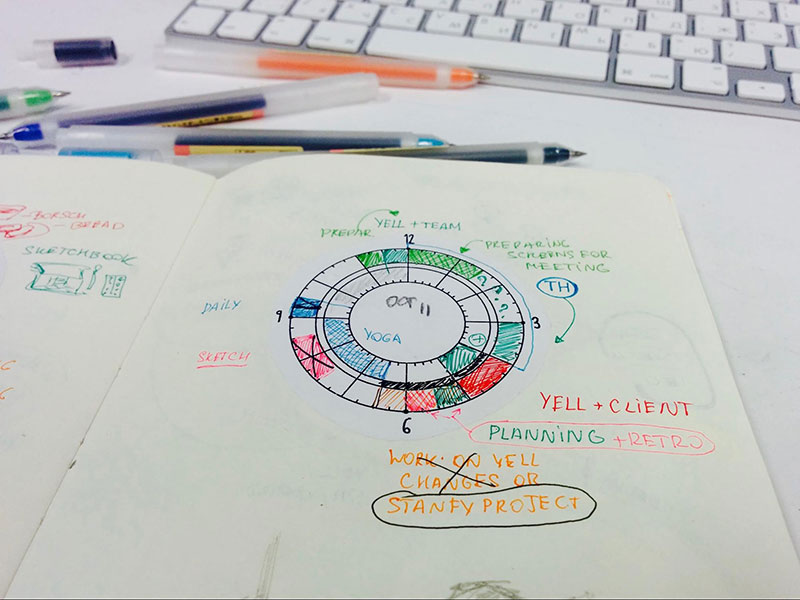 - BORSCH
- BREAD
SKETCHBOOK
YELL + TEAM
PREPAR
12
PREPARING
SCREENS FOR
MEETING
? ? ?
TH
DAILY
9
OCT 11
3
YOGA
SKETCH
6
YELL + CLIENT
PLANNING + RETRO
WORK ON YELL
CHANGES OR
STANFY PROJECT